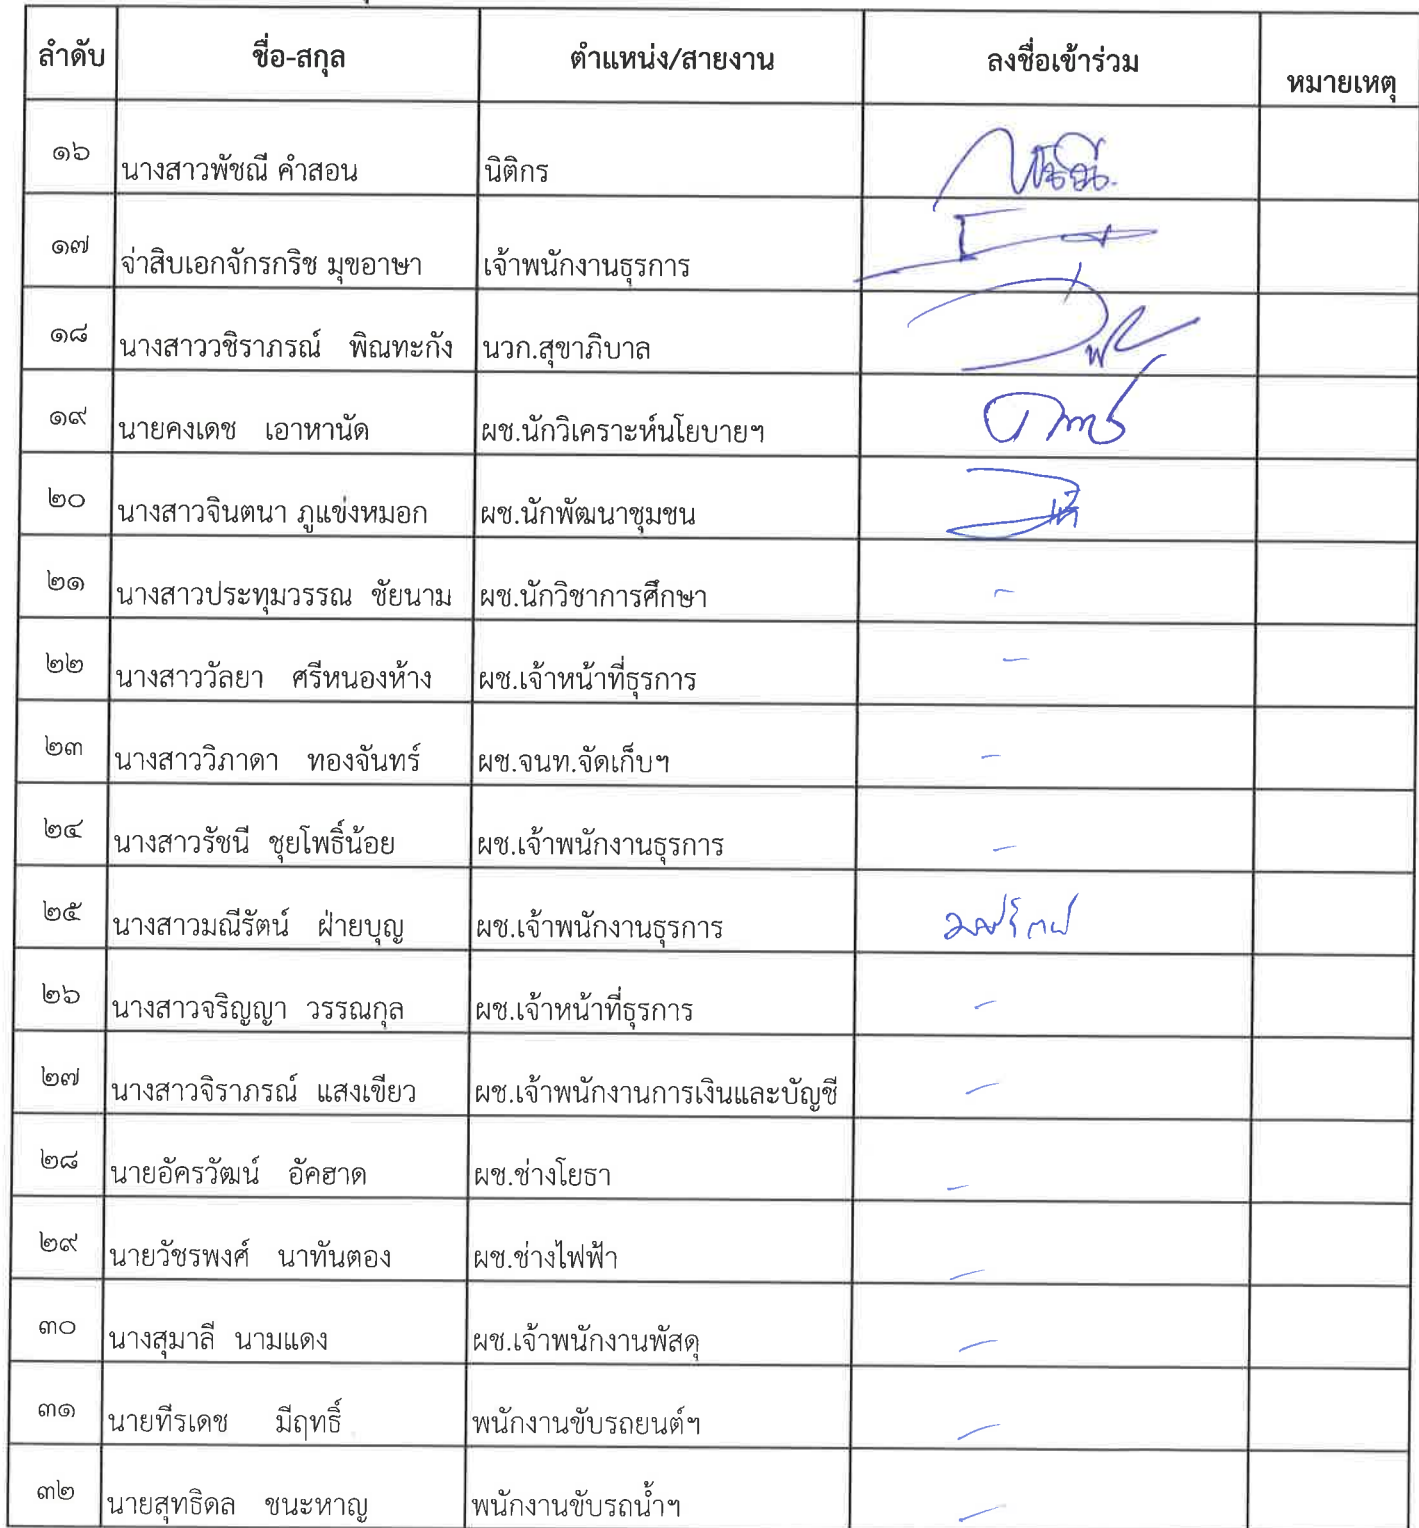 ลำดับ ชื่อ-สกุล ตำแหน่ง/สายงาน ลงชื่อเข้าร่วม หมายเหตุ
๑๖ นางสาวพัชณี คำสอน นิติกร พัชณี.
๑๗ จ่าสิบเอกจักรกริช มุขอาษา เจ้าพนักงานธุรการ
๑๘ นางสาววชิราภรณ์ พิณทะกัง นวก.สุขาภิบาล
๑๙ นายคงเดช เอาหานัด ผช.นักวิเคราะห์นโยบายฯ
๒๐ นางสาวจินตนา ภูแข่งหมอก ผช.นักพัฒนาชุมชน
๒๑ นางสาวประทุมวรรณ ชัยนาม ผช.นักวิชาการศึกษา -
๒๒ นางสาววัลยา ศรีหนองห้าง ผช.เจ้าหน้าที่ธุรการ -
๒๓ นางสาววิภาดา ทองจันทร์ ผช.จนท.จัดเก็บฯ -
๒๔ นางสาวรัชนี ชุยโพธิ์น้อย ผช.เจ้าพนักงานธุรการ -
๒๕ นางสาวมณีรัตน์ ฝ่ายบุญ ผช.เจ้าพนักงานธุรการ มณีรัตน์
๒๖ นางสาวจริญญา วรรณกุล ผช.เจ้าหน้าที่ธุรการ -
๒๗ นางสาวจิราภรณ์ แสงเขียว ผช.เจ้าพนักงานการเงินและบัญชี -
๒๘ นายอัครวัฒน์ อัคฮาด ผช.ช่างโยธา -
๒๙ นายวัชรพงศ์ นาทันตอง ผช.ช่างไฟฟ้า -
๓๐ นางสุมาลี นามแดง ผช.เจ้าพนักงานพัสดุ -
๓๑ นายทีรเดช มีฤทธิ์ พนักงานขับรถยนต์ฯ -
๓๒ นายสุทธิดล ชนะหาญ พนักงานขับรถน้ำฯ -